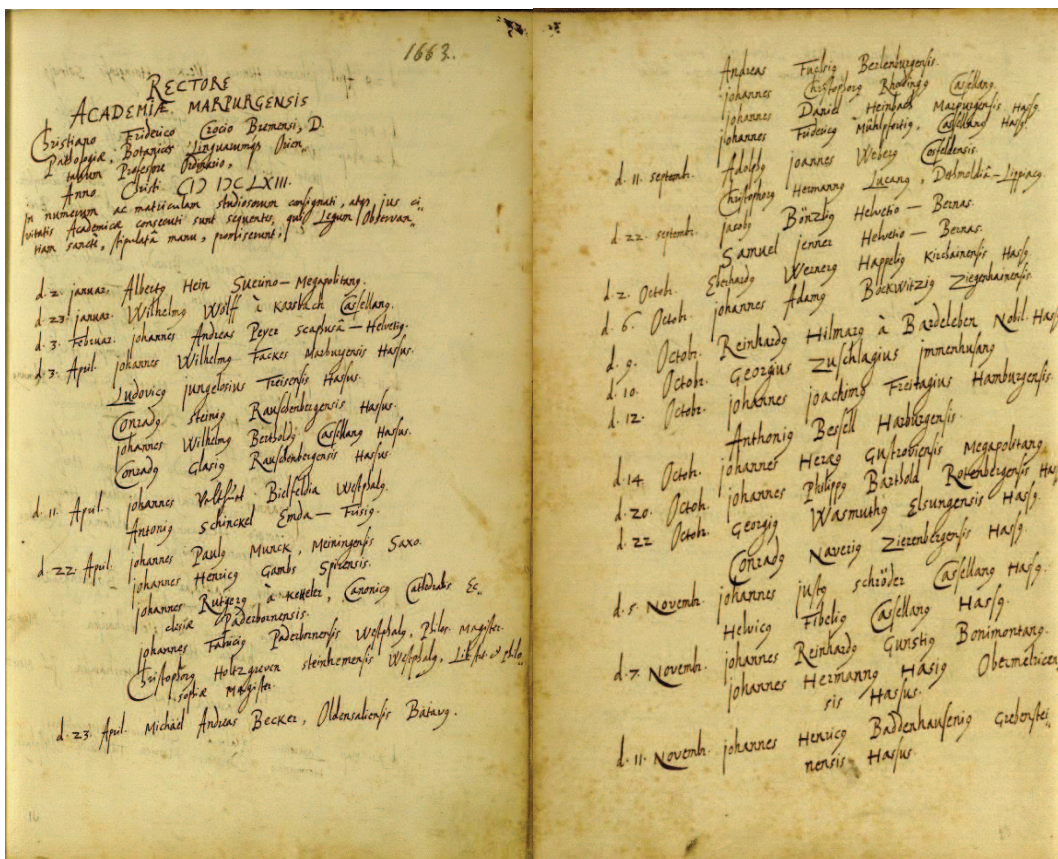 1663.
RECTORE
ACADEMIÆ MARPURGENSIS
Christiano Friderico Crocio Bremensi, D.
Pathologiæ, Botanices Linguarumq3 Orien„
talium Professore Ordinario,
Anno Christi CIƆ IƆC LXIII.
In numerum ac matriculam studiosorum consignati, atq3 jus ci„
vitatis Academicæ consecuti sunt sequentes, qui Legum Observan„
tiam sancte, stipulatâ manu, promiserunt,
d. 2. januar. Albertꝰ Hein Suerino-Megapolitanꝰ.
d. 23. januar. Wilhelmꝰ Wolff à Karsbach Cassellanꝰ.
d. 3. Februar. johannes Andreas Peyer Scaphusâ-Helvetiꝰ.
d. 3. April. johannes Wilhelmꝰ Fackes Marburgensis Hassus.
Ludovicꝰ jungclosius Treisensis Hassus.
Conradꝰ steiniꝰ Rauschenbergensis Hassus.
johannes Wilhelmꝰ Bertholdꝰ Cassellanꝰ Hassus.
Conradꝰ Glasiꝰ Rauschenbergensis Hassus
d. 11. April. johannes Bielfeldia Westphalꝰ.
Antoniꝰ Schinckel Emda-Frisiꝰ.
d. 22. April. johannes Paulꝰ Munck, Meiningensis Saxo.
johannes Henricꝰ Gambs Spirensis.
johannes Rutgerꝰ à Ketteler, Canonicꝰ Cathedralis Ec„
clesiæ Paderbornensis.
johannes Fabriciꝰ Paderbornensis Westphalꝰ, Philos. Magister.
Christophorꝰ Holtzgreven steinhemensis Westphalꝰ, Lib. Art. & Philo„
sophiæ Magister.
d. 23. April. Michäel Andreas Becker, Oldensaliensis Batavꝰ.
Andreas Berlenburgensis.
johannes Christophorꝰ Rhodingꝰ Cassellanꝰ.
johannes Daniel Heinbach Marpurgensis Hassꝰ.
johannes Fridericꝰ Mühlpfortiꝰ, Cassellanꝰ Hassꝰ.
d. 11. septembr. Adolphꝰ joannes Weberꝰ Cosfeldensis.
Christophorꝰ Hermannꝰ Lucanꝰ, Dethmoldiâ-Lippiacꝰ
d. 22. septembr. jacobꝰ Bönzliꝰ Helvetio-Bernas.
Samuel jenner Helvetio-Bernas.
d. 2. Octobr. Eberhardꝰ Wernerꝰ Happeliꝰ Kirchainensis Hassꝰ
d. 6. Octobr. johannes Adamꝰ Bockwitziꝰ Ziegenhainensis.
d. 9. Octobr. Reinhardꝰ Hilmarꝰ à Bardeleben Nobil. Hass
d. 10. Octobr. Georgius Zuschlagius jmmenhusanꝰ
d. 12. Octobr. johannes joachimꝰ Freitagius Hamburgensis.
Anthoniꝰ Bessell Harburgensis.
d. 14. Octobr. johannes Herzꝰ Gustroviensis Megapolitanꝰ
d. 20. Octobr. johannes Philippꝰ Barthold Rottenbergensis Has
d. 22 Octobr. Georgiꝰ Wasmuthꝰ Elsungensis Hassꝰ.
Conradꝰ Naveriꝰ Zierenbergensis Hassꝰ.
d. 5. Novembr. johannes justꝰ schröder Cassellanꝰ Hassꝰ.
Helvicꝰ Fibeliꝰ Cassellanꝰ Hassꝰ.
d. 7. Novembr. johannes Reinhardꝰ Gunstiꝰ Bonimontanꝰ.
johannes Hermannꝰ Hasiꝰ Obermelricen
sis Hassus.
d. 11. Novembr. johannes Henricꝰ Baddenhauseniꝰ Grebenstei„
nensis Hassus.